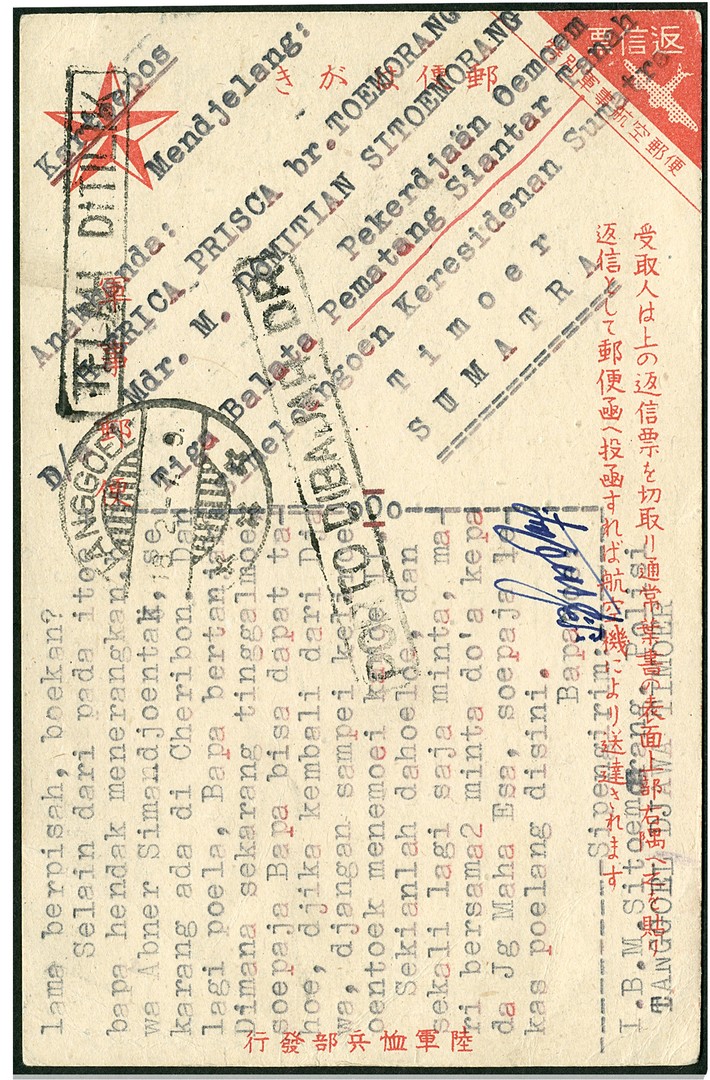 返信票
軍事航空郵便
郵便はがき
軍事郵便
Kartoepos
Mendjelang:
Anakhonda:
PRISCA br. TOEMORANG
Mdr. M. DOMITIAN SITOEMORANG
D/
Pekerdjaän Oemoem
Tiga Balata Pematang Siantar Tanah
Simeloengoen Keresidenan Sumatra
Timoer
SUMATRA
TELAH DITILIK
TANGGOEL
受取人は上の返信票を切取り通常葉書の表面上部右隅へ之を貼り
返信として郵便函へ投函すれば航空機により送達されます
lama berpisah, boekan?
Selain dari pada itoe
bapa hendak menerangkan,
wa Abner Simandjoentak, se
karang ada di Cheribon. Dan
lagi poela, Bapa bertanja
Dimana sekarang tinggalmoe
soepaja Bapa bisa dapat ta-
hoe, djika kembali dari Dja
wa, djangan sampei keliroe
oentoek menemoei
Sekianlah dahoeloe, dan
sekali lagi saja minta, ma-
ri bersama2 minta do'a kepa
da Jg Maha Esa, soepaja le-
kas poelang disini.
Bapa
Sipengirim:
I.B.M.Sitoemorang, Polisi
TANGGOEL DJAWA TIMOER
陸軍恤兵部發行